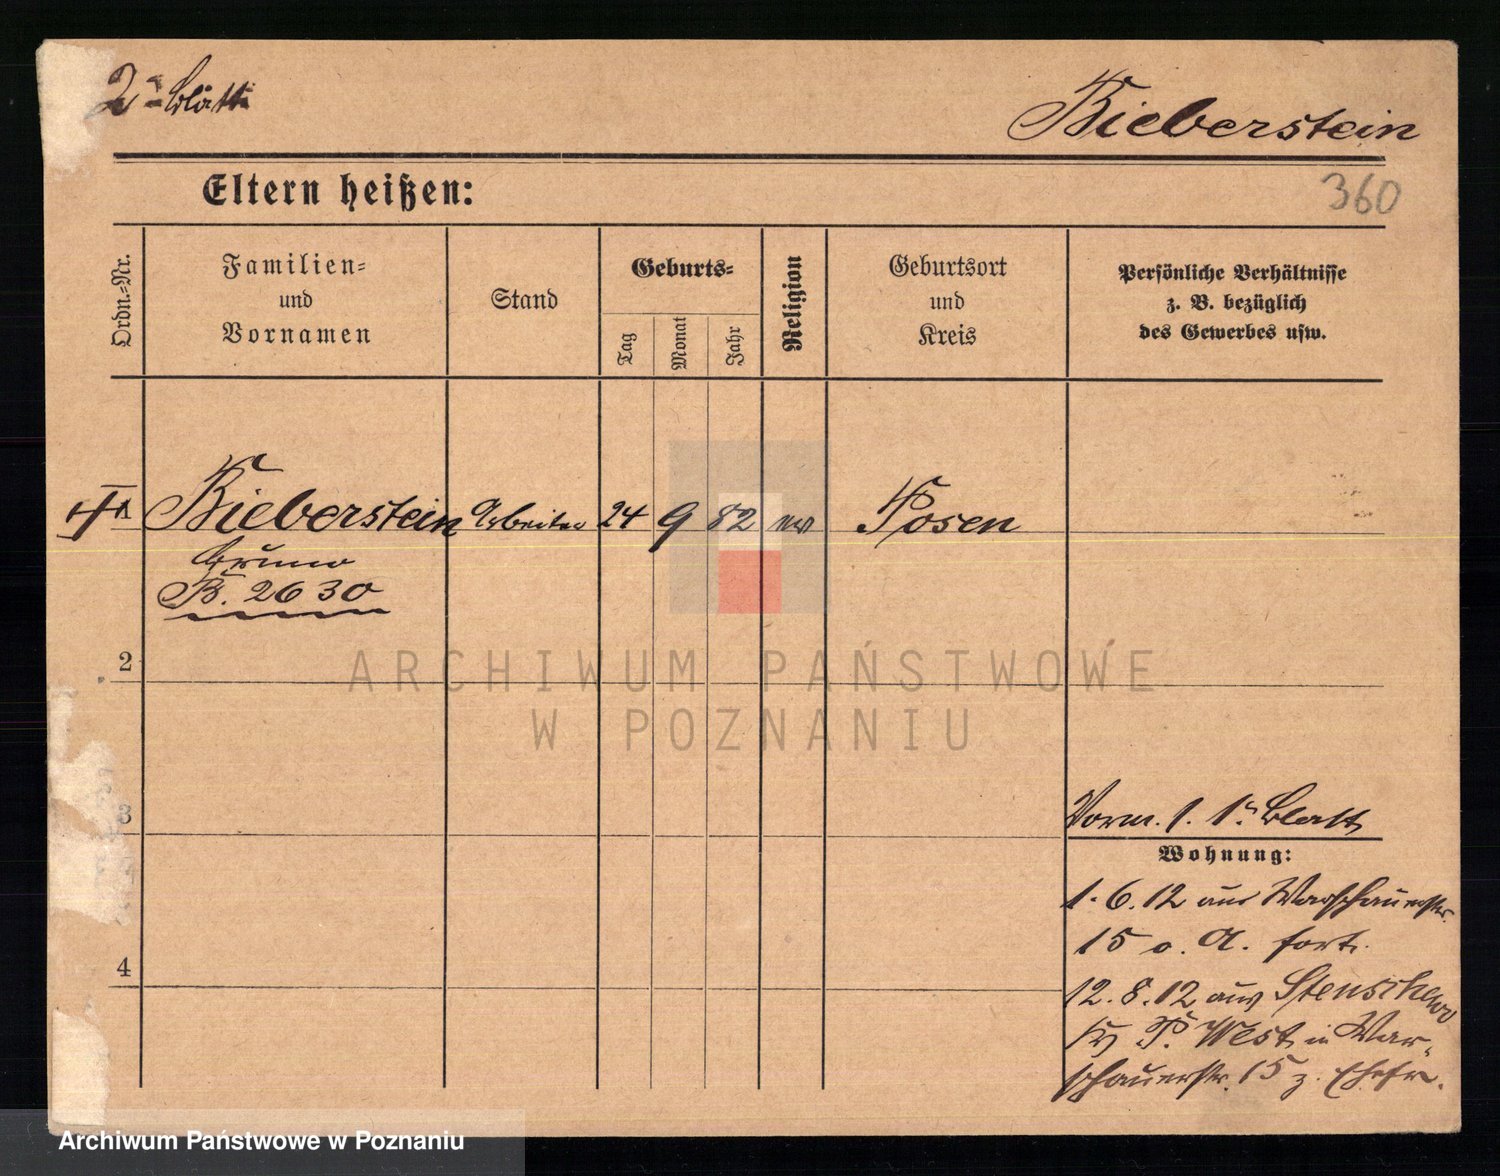 2tes Blatt
Bieberstein
Eltern heißen:
360
Ordn.=Nr.
Familien=
und
Vornamen
Stand
Geburts=
Tag
Monat
Jahr
Religion
Geburtsort
und
Kreis
Persönliche Verhältnisse
z. B. bezüglich
des Gewerbes usw.
Bieberstein Arbeiter 24 9 82 ev Posen
Bruno
B. 2630
2
ARCHIWUM PAŃSTWOWE
W POZNANIU
3
Vorm. s. 1. Blatt
Wohnung:
1. 6. 12 aus Warschauerstr.
15 o. A. fort.
4
12. 8. 12 aus Stenschewo
Kr P. West in War-
schauerstr. 15 z. Ehefr.
Archiwum Państwowe w Poznaniu